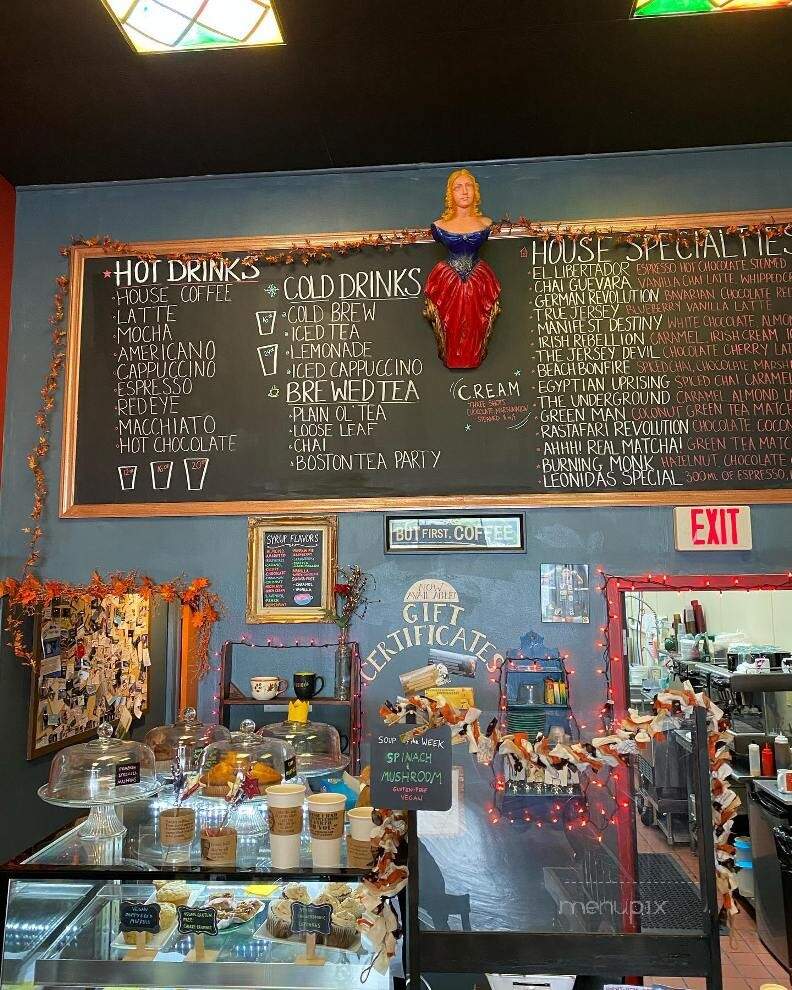 HOT DRINKS
HOUSE COFFEE
LATTE
MOCHA
AMERICANO
CAPPUCCINO
ESPRESSO
RED EYE
MACCHIATO
HOT CHOCOLATE
12oz
16oz
20oz
COLD DRINKS
COLD BREW
ICED TEA
LEMONADE
ICED CAPPUCCINO
16oz
24oz
BREWED TEA
PLAIN OL' TEA
LOOSE LEAF
CHAI
BOSTON TEA PARTY
C.R.E.A.M
THREE SHOTS
CHOCOLATE, MARSHMALLOW
STEAMED
HOUSE SPECIALTIES
EL LIBERTADOR ESPRESSO HOT CHOCOLATE STEAMED
CHAI GUEVARA VANILLA CHAI LATTE, WHIPPED CR
GERMAN REVOLUTION BAVARIAN CHOCOLATE RED
TRUE JERSEY BLUEBERRY VANILLA LATTE
MANIFEST DESTINY WHITE CHOCOLATE, ALMON
IRISH REBELLION CARAMEL, IRISH CREAM
THE JERSEY DEVIL CHOCOLATE CHERRY LAT
BEACH BONFIRE SPICED CHAI, CHOCOLATE, MARSH
EGYPTIAN UPRISING SPICED CHAI CARAMEL
THE UNDERGROUND CARAMEL ALMOND
GREEN MAN COCONUT GREEN TEA MATCH
RASTAFARI REVOLUTION CHOCOLATE COCON
AHHH! REAL MATCHA! GREEN TEA MATC
BURNING MONK HAZELNUT, CHOCOLATE
LEONIDAS SPECIAL 300mL OF ESPRESSO,
SYRUP FLAVORS
BUT FIRST, COFFEE
EXIT
NOW
AVAILABLE!
GIFT
CERTIFICATES
SOUP OF THE WEEK
SPINACH
&
MUSHROOM
GLUTEN-FREE
VEGAN
menupix